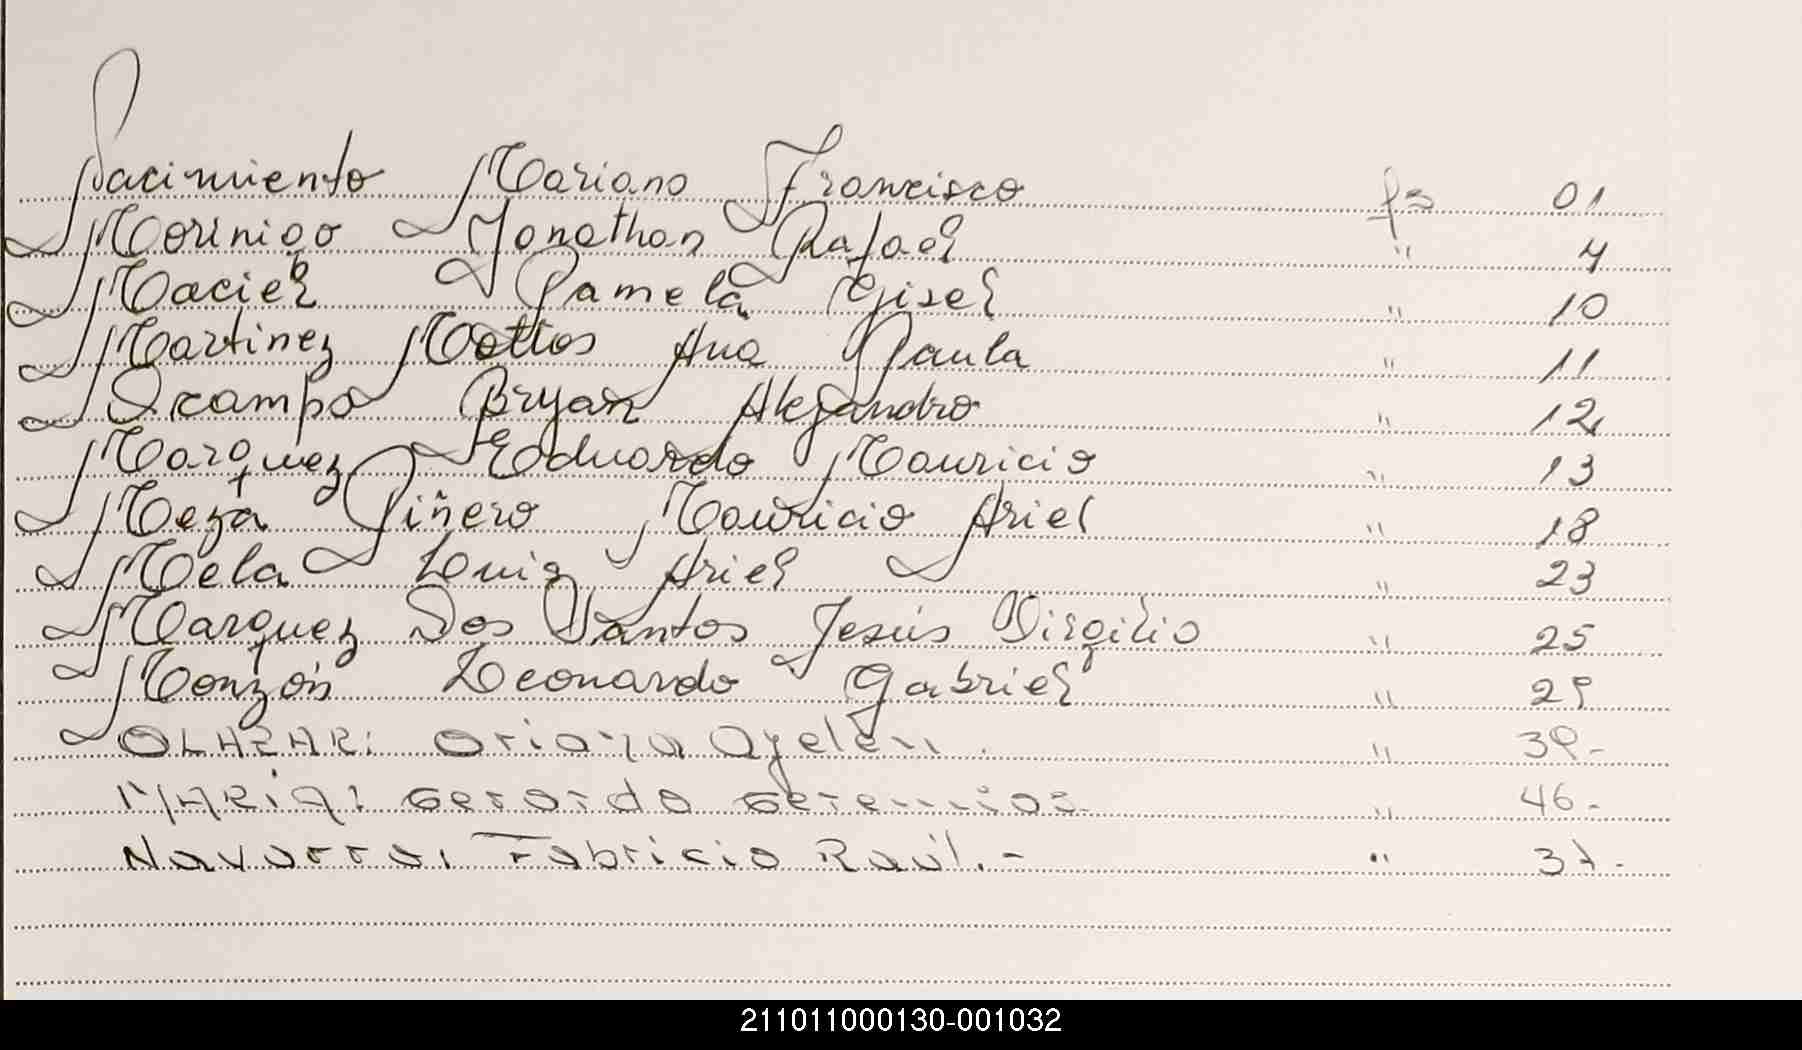 Nacimiento Mariano Francisco fs 01
Morinigo Jonathan Rafael " 4
Maciel Pamela Gisel " 10
Martinez Mattos Ana Paula " 11
Ocampo Bryan Alejandro " 12
Marquez Eduardo Mauricio " 13
Meza Piñero Mauricio Ariel " 18
Mela Luiz Ariel " 23
Marquez Dos Santos Jesús Virgilio " 25
Monzón Leonardo Gabriel " 29
OLAZAR: Oriana Ayelen. " 39-
Gerardo Geremias. " 46-
Navarro, Fabricio Raúl.- " 37-
211011000130-001032